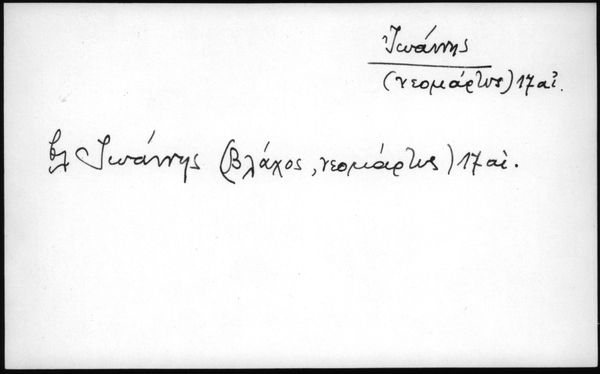 Ἰωάννης
(νεομάρτυς) 17 αἰ.
βλ Ἰωάννης (Βλάχος, νεομάρτυς) 17 αἰ.